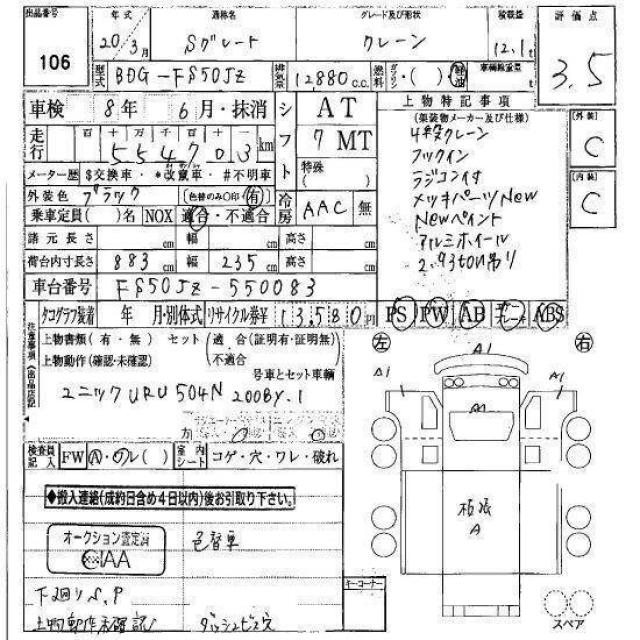 出品番号 年式 通称名 グレード及び形状 積載量 評価点
106 20/3月 Sグレート クレーン 12.1t 3.5
型式 BDG-FS50JZ 排気量 12880 c.c. 燃料 ガソリン・( ) 軽油 車輌総重量
車検 8年 6月・抹消 シフト AT 上物特記事項
7 MT (架装物メーカー及び仕様) [外装] C
走行 百十万千百十一 554703 km 4段クレーン
フックイン
メーター歴 $交換車・*改竄車・#不明車 特殊( ) ラジコン付
外装色 ブラック [色替のみ○印 有] 冷房 AAC 無 メッキパーツNew [内装] C
乗車定員( )名 NOX 適合・不適合 Newペイント
諸元長さ cm 幅 cm 高さ cm アルミホイール
荷台内寸長さ 883 cm 幅 235 cm 高さ cm 2.93ton吊り
車台番号 FS50JZ-550083
タコグラフ装着 年 月・別体式 リサイクル券¥ 13,580円 PS PW AB ABS
注意事項(出品店記
上物書類(有・無) セット(適合(証明有・証明無) 左 右
上物動作(確認・未確認) 不適合
号車とセット車輌 A1 A1 A1
ユニックURU504N 200BY.1
検査員記入 FW A・ ( ) 室内シート コゲ・穴・ワレ・破れ
◆搬入連絡(成約日含め4日以内)後お引取り下さい。
オークション査定済 色替車 A
CIAA
下回りS.P キーコーナー
上物動作未確認 ダッシュビス穴 スペア